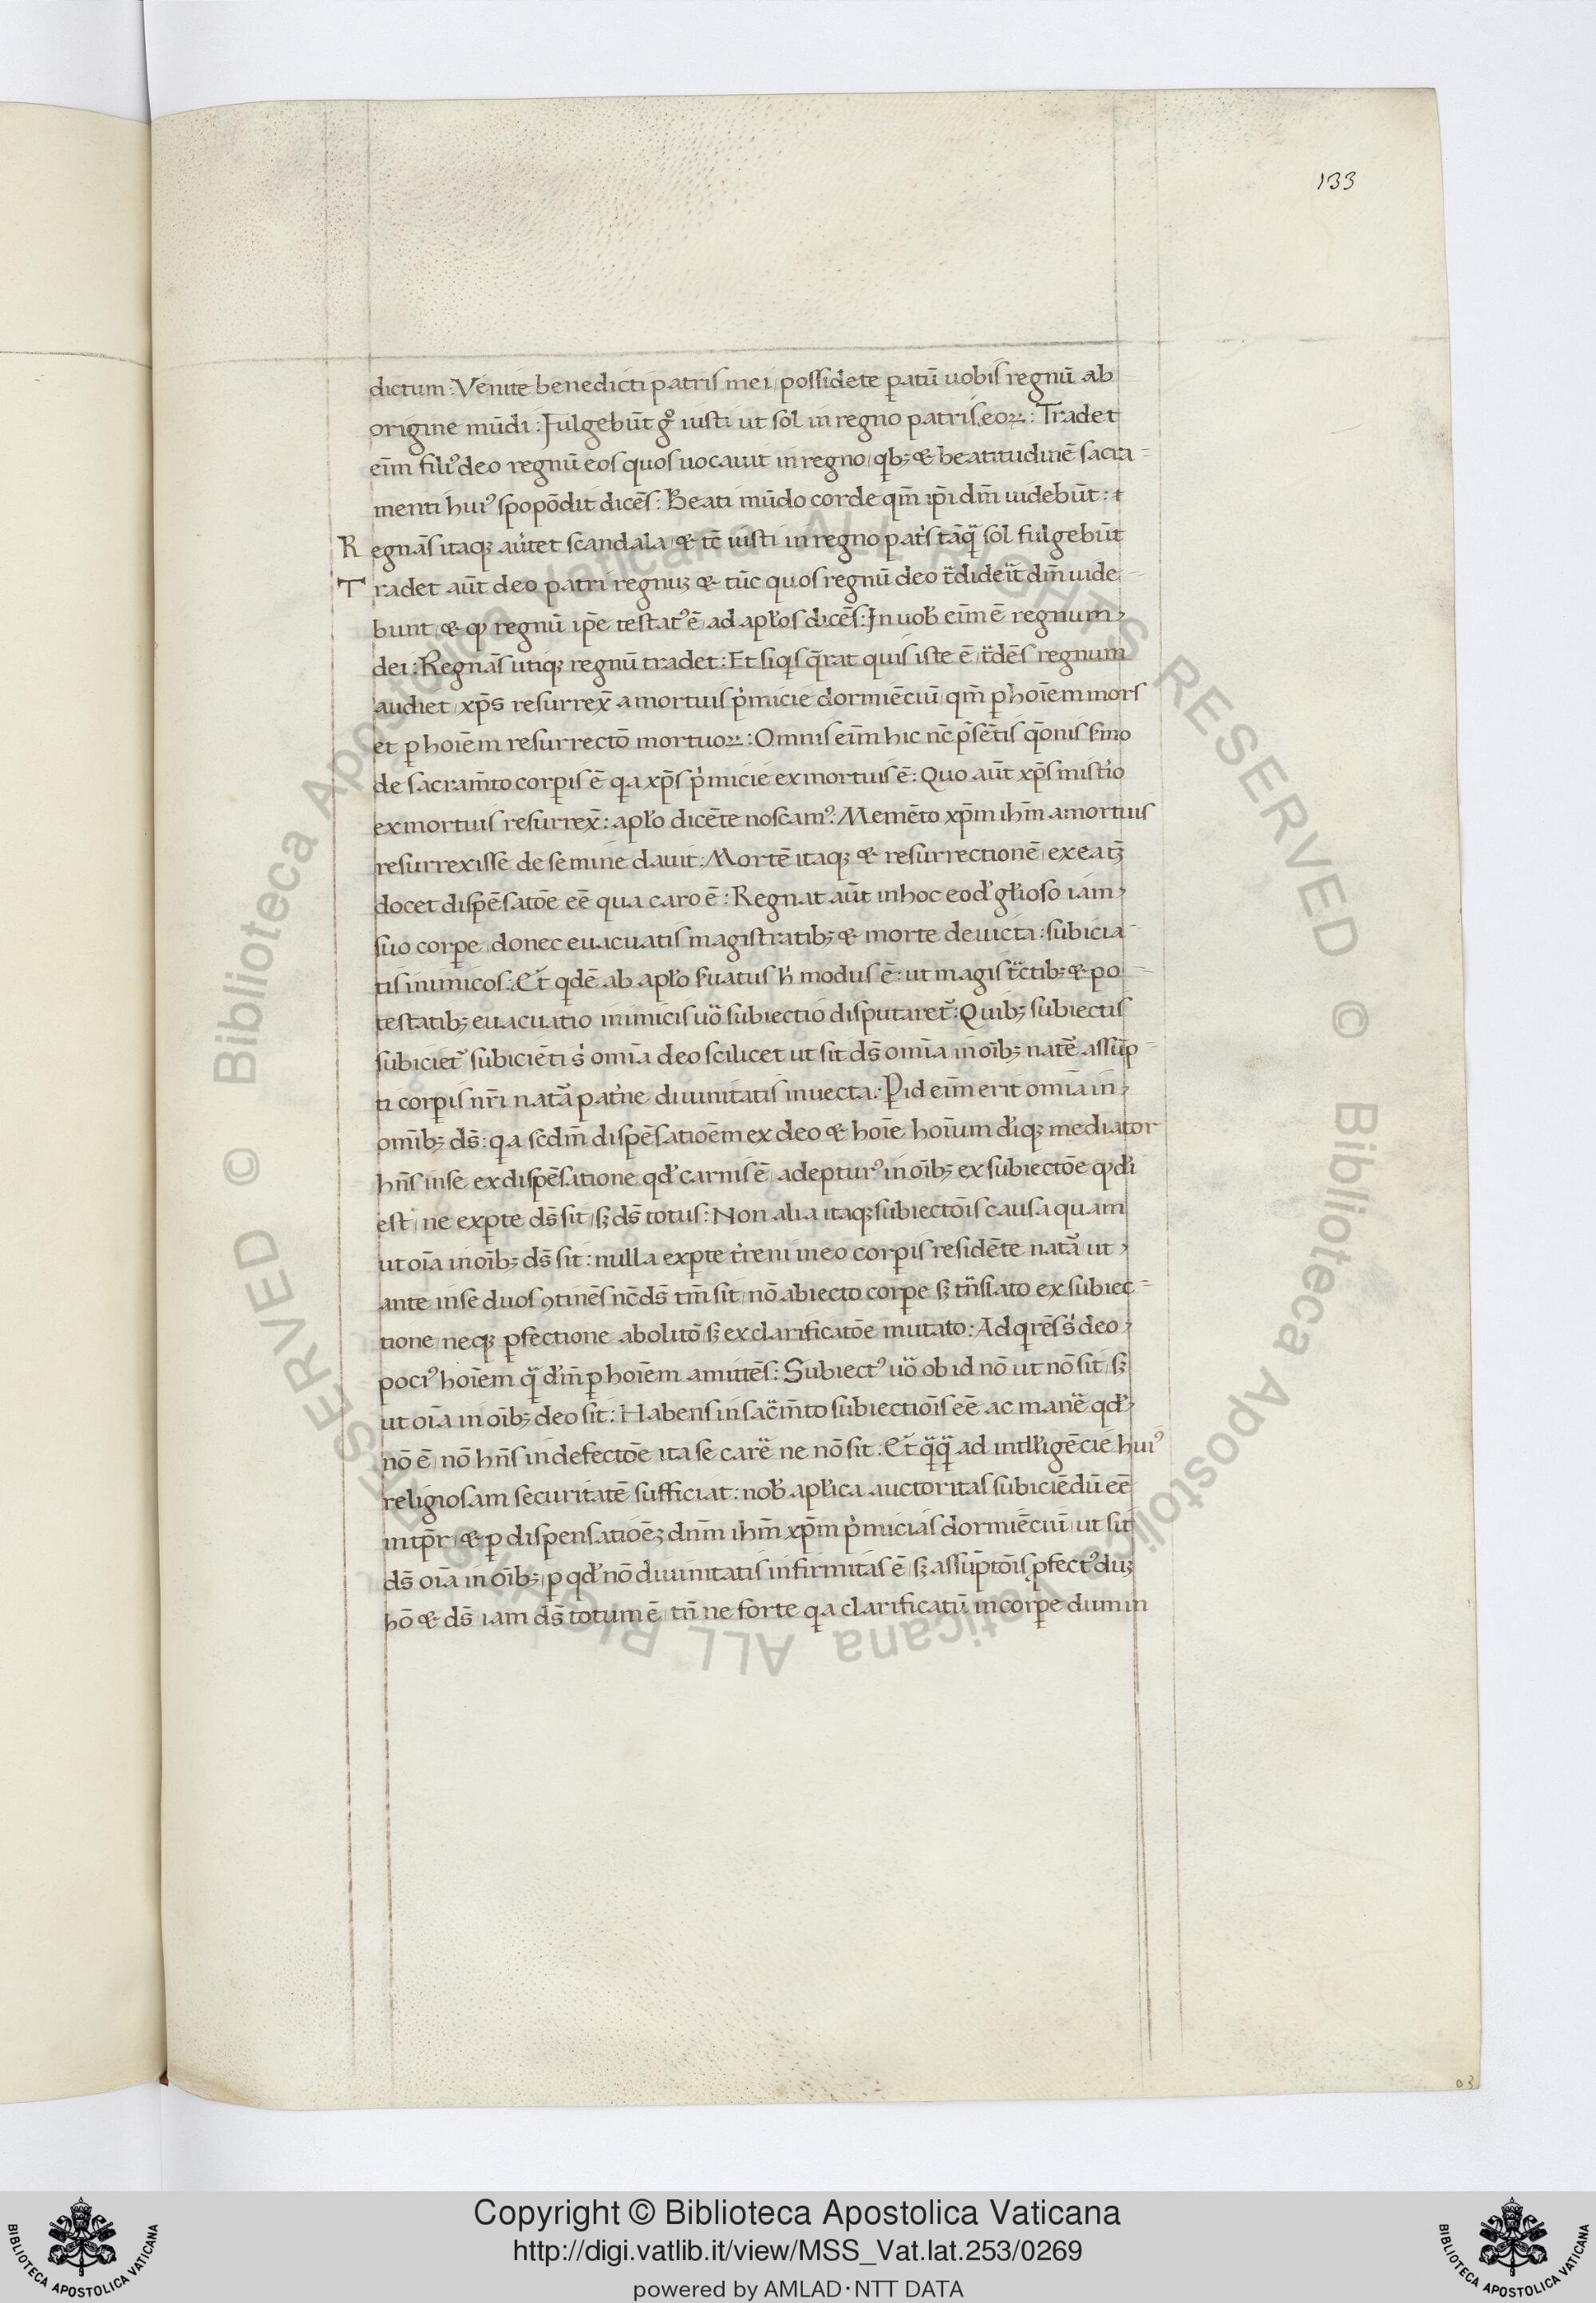 133
dictum: Venite benedicti patris mei, possidete ꝑatū uobis regnū ab
origine mūdi: Fulgebūt gͦ iusti ut sol in regno patris eoꝝ: Tradet
eīm filiꝰ deo regnū eos quos uocauit in regno, qbꝫ & beatitudinē sacra-
menti huiꝰ spopōdit dicēs: Beati mūdo corde qm̄ ip̄i dm̄ uidebūt:
Regnās itaqꝫ auͥfet scandala, & tc̄ iusti in regno patͥs tāqͣ sol fulgebūt
Tradet aūt deo patri regnuꝫ & tūc quos regnū deo tͣdideͥt dm̄ uide-
bunt, & qꝫ regnū ip̄e testatꝰ ē ad apłos dicēs: In uob̵ eīm ē regnum
dei: Regnās utiqꝫ regnū tradet: Et siqͥs q̄rat quis iste ē tͣdēs regnum
audiet, xp̄s resurrex̄ a mortuis pͥmicie dormiēciū, qm̄ ꝑ hoīem mors
et ꝑ hoīem resurrectō mortuoꝝ: Omnis eīm hic nc̄ pͥsētis qōnis sͬmo
de sacram̄to corꝑis ē qͥa xp̄s pͥmicie ex mortuis ē: Quo aūt xp̄s mistͥio
ex mortuis resurrex̄: apło dicēte noscamꝰ: Memēto xp̄m ihm̄ a mortuis
resurrexisse de semine dauit: Mortē itaqꝫ & resurrectionē, ex ea tꝫ
docet dispēsatōe eē qua caro ē: Regnat aūt in hoc eod̵ gl̵ioso iam
suo corꝑe, donec euacuatis magistratibꝫ & morte deuicta: subicia-
tis inimicos: Et qͥdē ab apło sͬuatus h̵ modus ē: ut magistͣtibꝫ & po-
testatibꝫ euacuatio inimicis uͦo subiectio disputaret᷑: Quibꝫ subiectis
subiciet᷑ subiciēti sͥ omīa deo scilicet ut sit ds̄ omīa in oībꝫ natē᷑ assūp-
ti corꝑis nr̄i natā᷑ patͥne diuinitatis inuecta: Ꝑ id eīm erit omīa in
omībꝫ ds̄: qͥa scdm̄ dispēsatioēm ex deo & hoīe hoīum d̵iqꝫ mediator
hn̄s in se ex dispēsatione qd̵ carnis ē, adepturꝰ in oībꝫ ex subiectōe qd̵ d̵i
est, ne ex ꝑte ds̄ sit, sꝫ ds̄ totus: Non alia itaqꝫ subiectōis causa quam
ut oīa in oībꝫ ds̄ sit: nulla ex ꝑte tͬreni in eo corꝑis residēte natā᷑ ut
ante in se duos ꝯtinēs nc̄ ds̄ tm̄ sit, nō abiecto corꝑe sꝫ tn̄slato ex subiec-
tione, neqꝫ ꝑfectione abolitō sꝫ ex clarificatōe mutato: Adqͥrēs sͥ deo
pociꝰ hoīem qͣ d̵m̄ ꝑ hoīem amittēs: Subiectꝰ uͦo ob id nō ut nō sit, sꝫ
ut oīa in oībꝫ deo sit: Habens in sac̄m̄to subiectiōis eē ac manē᷑ qd̵
nō ē, nō hn̄s in defectōe ita se carē᷑ ne nō sit: Et qͣqͣ ad intl̵l̵igēcie huiꝰ
religiosam securitatē sufficiat: nob̵ apl̵ica auctoritas subiciēdū eē
intp̄r, & ꝑ dispensatioēꝫ dnm̄ ihm̄ xp̄m pͥmicias dormiēciū, ut sit
ds̄ oīa in oībꝫ, ꝑ qd̵ nō diuinitatis infirmitas ē, sꝫ assūptōis ꝓfectꝰ duꝫ
hō & ds̄ iam ds̄ totum ē, tn̄ ne forte qͥa clarificatū in corꝑe dum in
03
Copyright © Biblioteca Apostolica Vaticana
http://digi.vatlib.it/view/MSS_Vat.lat.253/0269
powered by AMLAD·NTT DATA